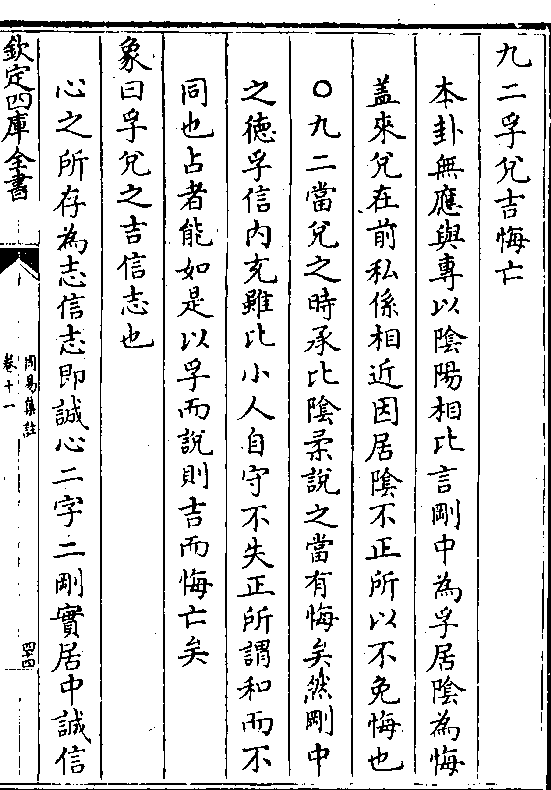 九二孚兌吉悔亡
本卦無應與專以陰陽相比言剛中為孚居陰為悔
蓋來兌在前私係相近因居陰不正所以不免悔也
○九二當兌之時承比陰柔說之當有悔矣然剛中
之德孚信内充雖比小人自守不失正所謂和而不
同也占者能如是以孚而說則吉而悔亡矣
象曰孚兌之吉信志也
心之所存為志信志即誠心二字二剛實居中誠信
欽定四庫全書
周易集註
卷十一
四十四